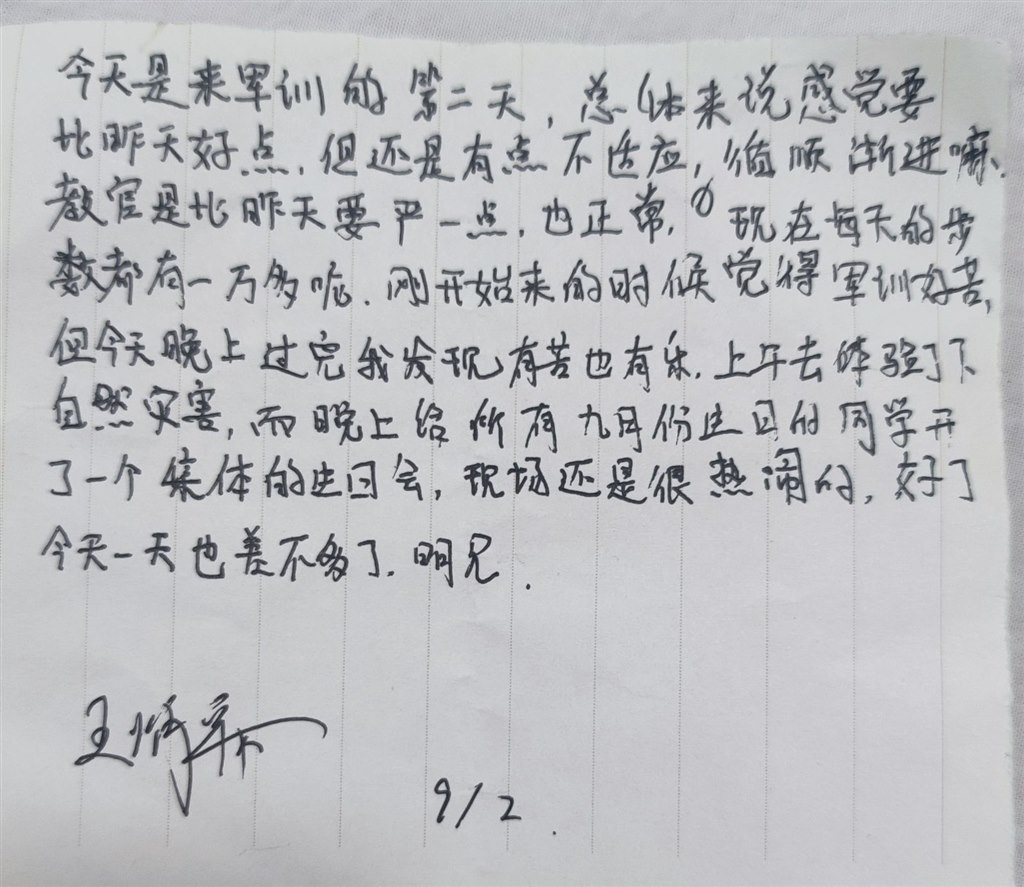 今天是来军训的第二天，总体来说感觉要
比昨天好点，但还是有点不适应，循顺渐进嘛、
教官是比昨天要严一点，也正常，现在每天的步
数都有一万多呢．刚开始来的时候觉得军训好苦，
但今天晚上过完我发现有苦也有乐．上午去体验了下
自然灾害，而晚上给所有九月份生日的同学开
了一个集体的生日会，现场还是很热闹的，好了
今天一天也差不多了．明见．
王
9/2．